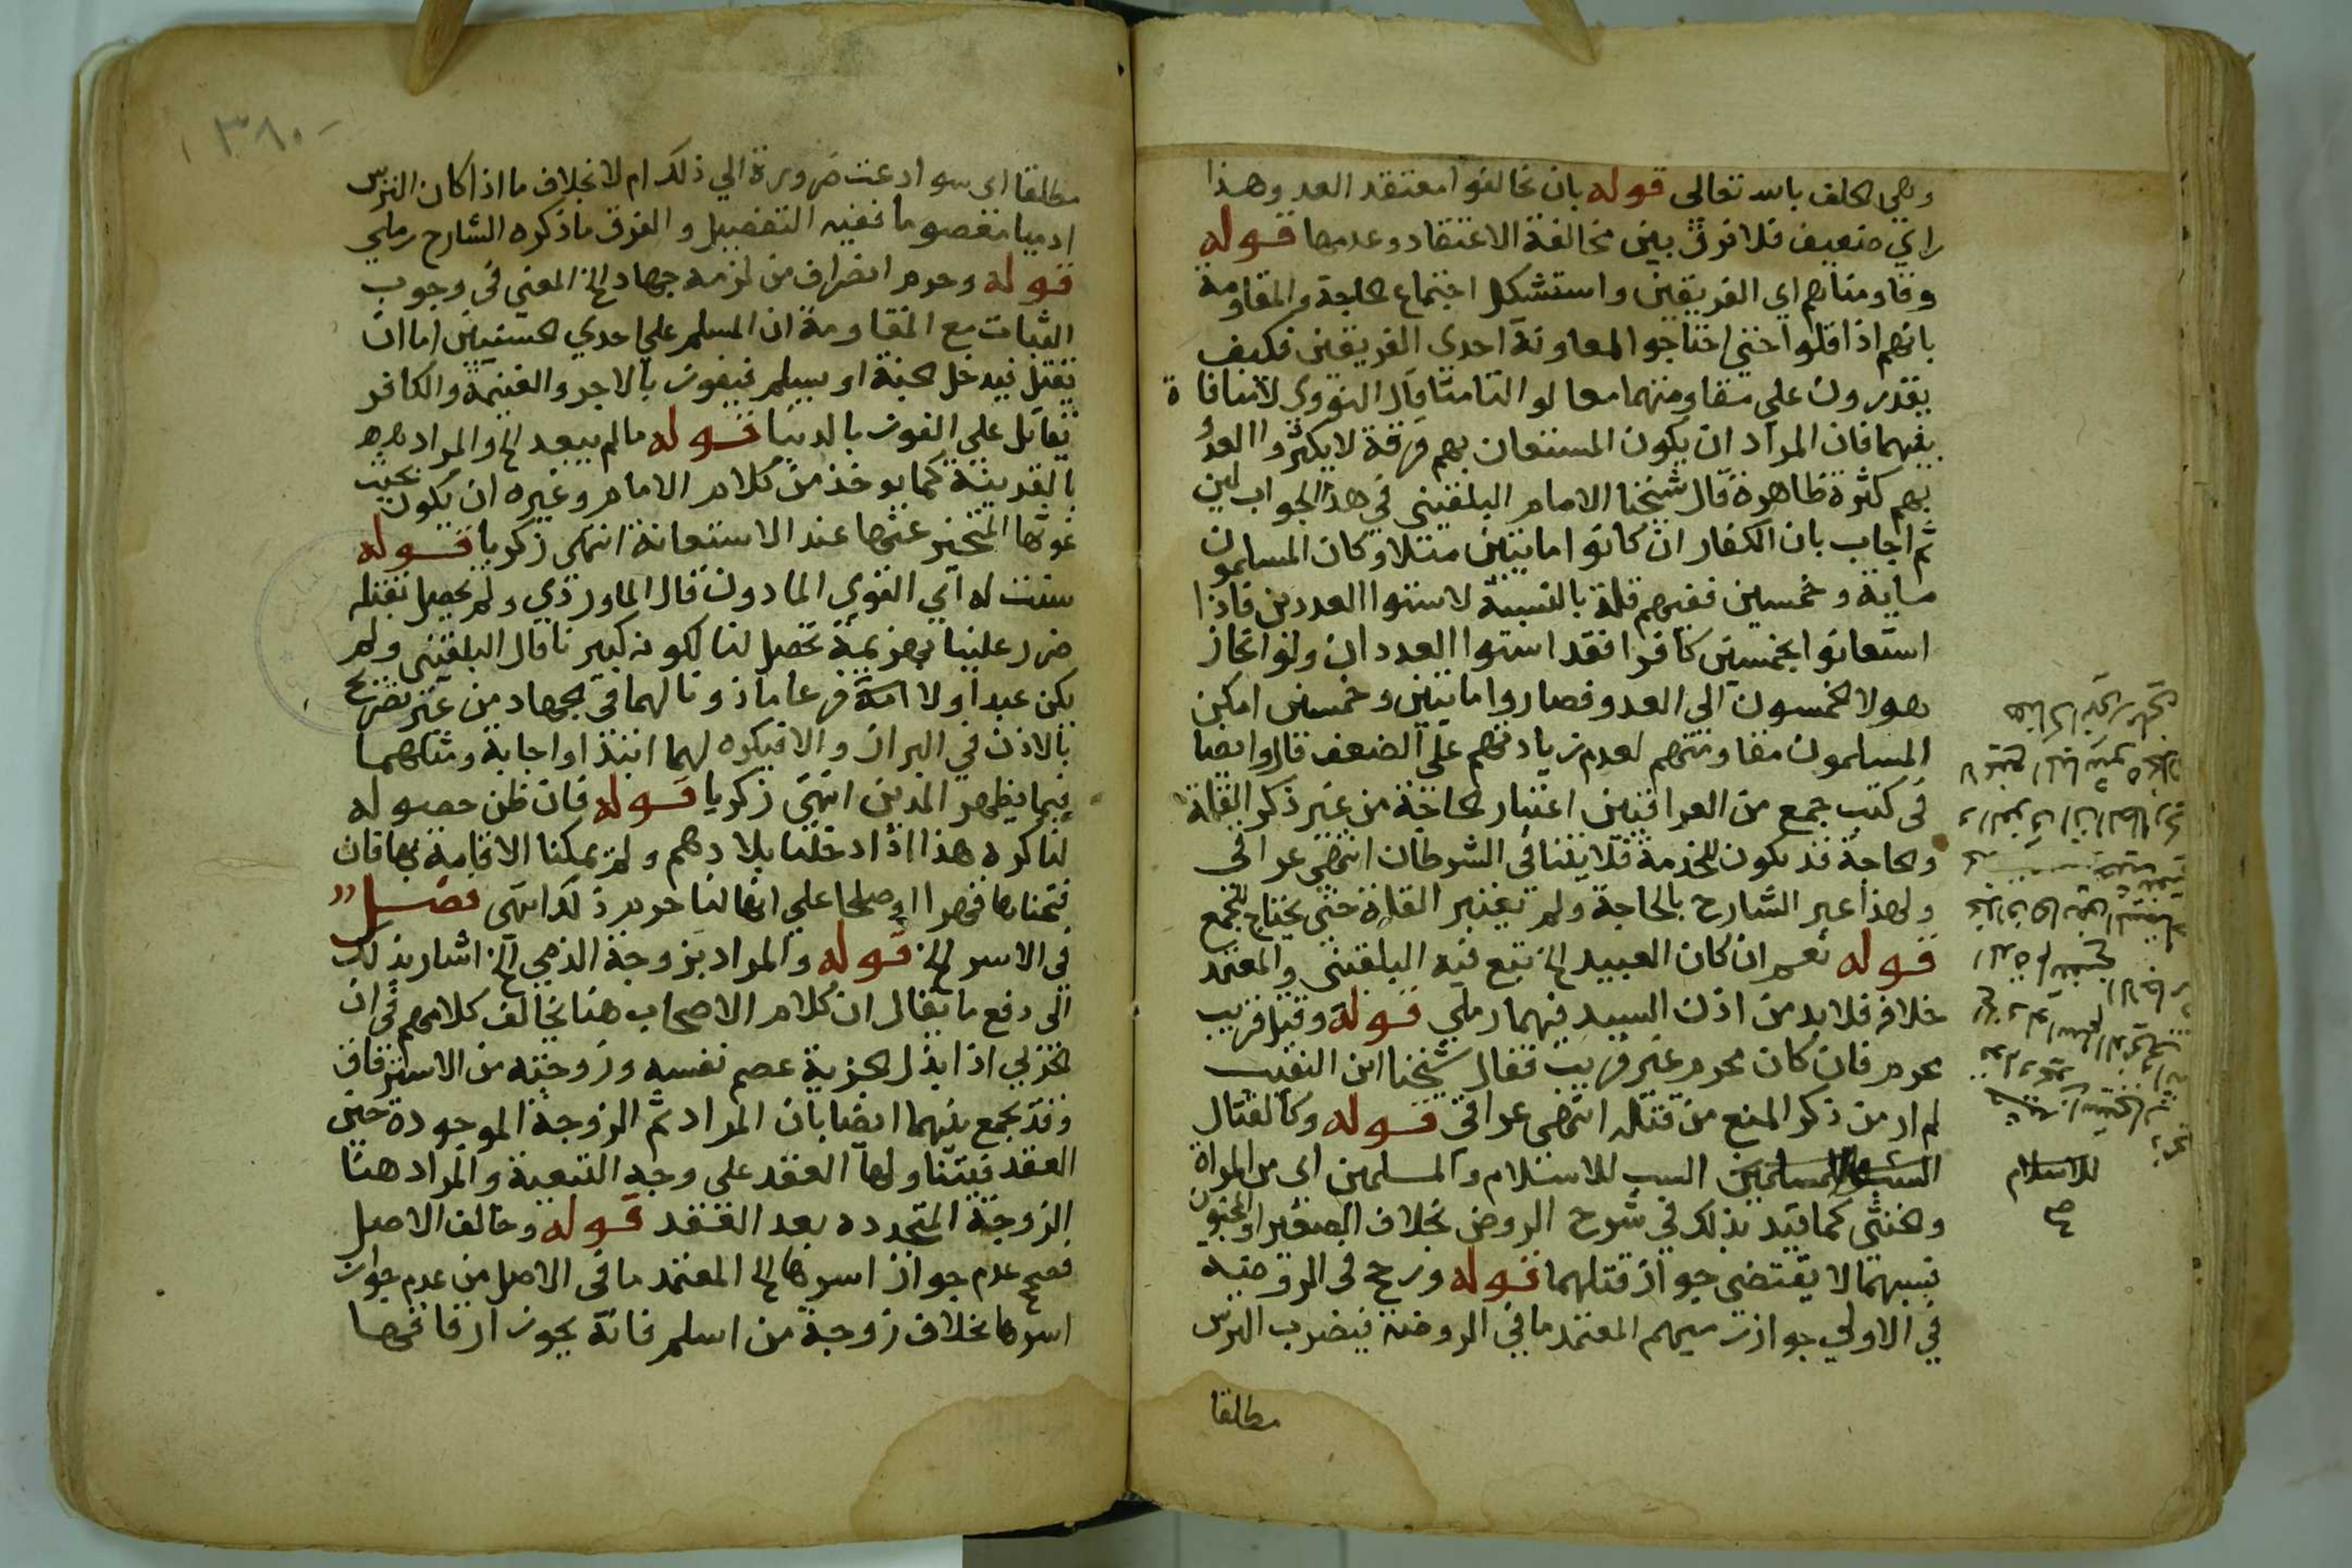 وهي الحلف بالله تعالى قوله بان تخالفوا معتقد العدو وهذا
راي ضعيف فلا فرق بين مخالفة الاعتقاد وعدمها قوله
وقاومناهم اي الفريقين واستشكل اجتماع الحاجة والمقاومة
بانهم اذا قلوا حتى احتاجوا لمعاونة احدي الفريقين فكيف
يقدرون علي مقاومتهما معا لو التامتا قال النووي لا منافاة
بينهما فان المراد ان يكون المستعان بهم فرقة لا يكثروا العدو
بهم كثرة ظاهرة قال شيخنا الامام البلقيني في هذا الجواب لين
ثم اجاب بان الكفار ان كانوا مايتين مثلا وكان المسلمون
ماية وخمسين ففيهم قلة بالنسبة لاستوا العددين فاذا
استعانوا بخمسين كافرا فقد استوا العددان ولو انحاز
هولا الخمسون الي العدو فصاروا مايتين وخمسين امكن
المسلمون مقاومتهم لعدم زيادتهم على الضعف قال وايضا
في كتب جمع من العراقيين اعتبار الحاجة من غير ذكر القلة
والحاجة قد يكون للخدمة فلا يتنافي الشرطان انتهى عراقي
ولهذا عبر الشارح بالحاجة ولم تعتبر القلة حتى يحتاج للجمع
قوله نعم ان كان العبيد الخ تبع فيه البلقيني والمعتمد
خلافه فلا بد من اذن السيد فيهما رملي قوله وقتل قريب
محرم فان كان محرم غير قريب فقال شيخنا ابن النقيب
لم ار من ذكر المنع من قتله انتهى عراقي قوله وكالقتال
السب للاسلام والمسلمين اى من المراة
والخنثى كما قيد بذلك في شرح الروض بخلاف الصغير والمجنون
فسبهما لا يقتضى جواز قتلهما قوله ورجح في الروضة
في الاولي جواز رميهم المعتمد ما في الروضة فيضرب الترس
مطلقا
للاسلام
صح
٣٨٠
مطلقا اى سوا دعت ضرورة الي ذلك ام لا بخلاف ما اذا كان الترس
ادميا معصوما ففيه التفصيل والفرق ما ذكره الشارح رملي
قوله وحرم انصراف من لزمه جهاد الخ المعنى في وجوب
الثبات مع المقاومة ان المسلم علي احدي الحسنيين اما ان
يقتل فيدخل الجنة او يسلم فيفوز بالاجر والغنيمة والكافر
يقاتل علي الفوز بالدنيا قوله ما لم يبعد الخ والمراد بهم
بالقريبة كما يوخذ من كلام الامام وغيره ان يكون بحيث
غوثها المتحيز عنها عند الاستعانة انتهى زكريا قوله
سنت له اي القوي الماذون قال الماوردي ولم يحصل بقتله
ضرر علينا بهزيمة تحصل لنا لكونه كبيرنا قال البلقيني ولم
يكن عبدا ولا فرعا ماذونا لهما في الجهاد من غير تصريح
بالاذن في البراز والا فيكره لهما ابتدا واجابة ومثلهما
فيما يظهر المدين انتهى زكريا قوله فان ظن حصوله
لنا كره هذا اذا دخلنا بلادهم ولم يمكنا الاقامة بها فان
فتحناها قهرا او صلحا علي انها لنا حرم ذلك انتهى فصل
في الاسر الخ قوله والمراد بزوجة الذمي الخ اشار بذلك
الى دفع ما يقال ان كلام الاصحاب هنا يخالف كلامهم في ان
الحربي اذا بذل الجزية عصم نفسه وزوجته من الاسترقاق
وقد يجمع بينهما ايضا بان المراد ثم الزوجة الموجودة حين
العقد فيتناولها العقد على وجه التبعية والمراد هنا
الزوجة المتجدده بعد العقد قوله وخالف الاصل
فصحح عدم جواز اسرها الخ المعتمد ما في الاصل من عدم جواز
اسرها بخلاف زوجة من اسلم فانه يجوز ارقاقها